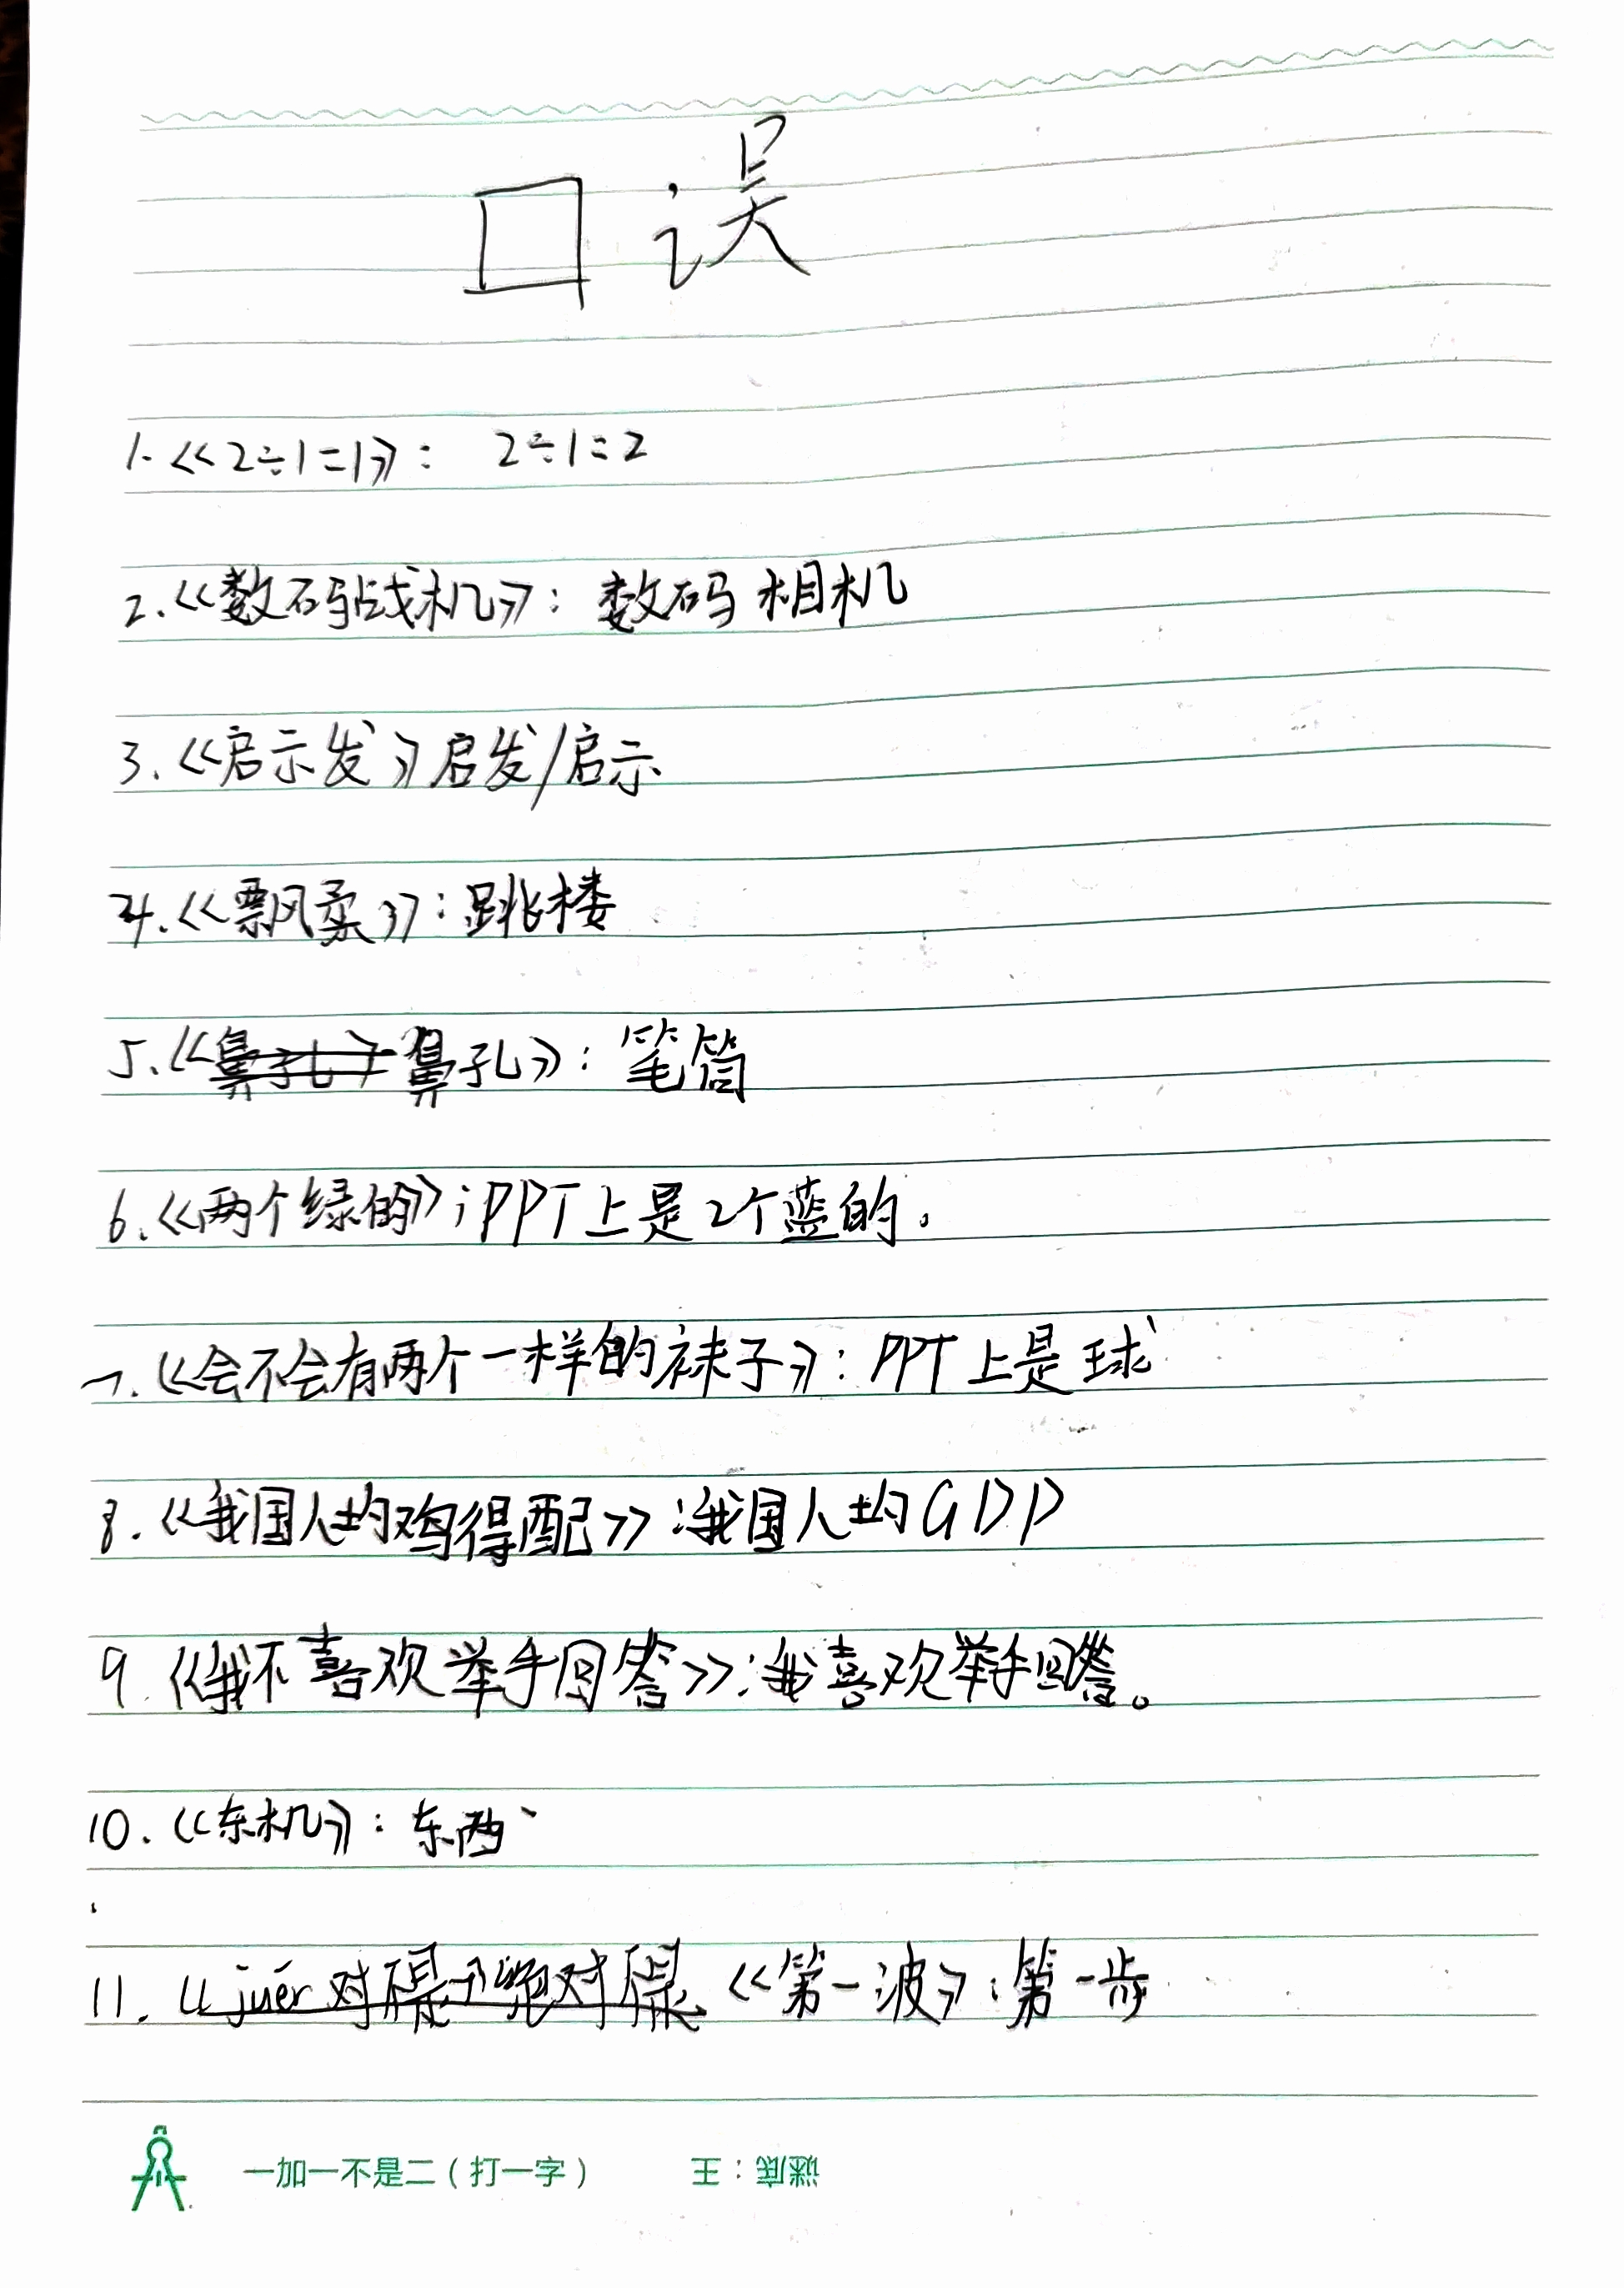 口误
1.《2÷1=1》: 2÷1=2
2.《数码战机》: 数码相机
3.《启示发》启发/启示
4.《飘柔》: 跳楼
5.《鼻孔》鼻孔》: 笔筒
6.《两个绿的》: PPT上是2个蓝的。
7.《会不会有两个一样的袜子》: PPT上是球
8.《我国人均鸡得配》: 我国人均GDP
9.《我不喜欢举手回答》: 我喜欢举手回答。
10.《东机》: 东西
11.《第一波》: 第一步
一加一不是二(打一字) 王:底谜